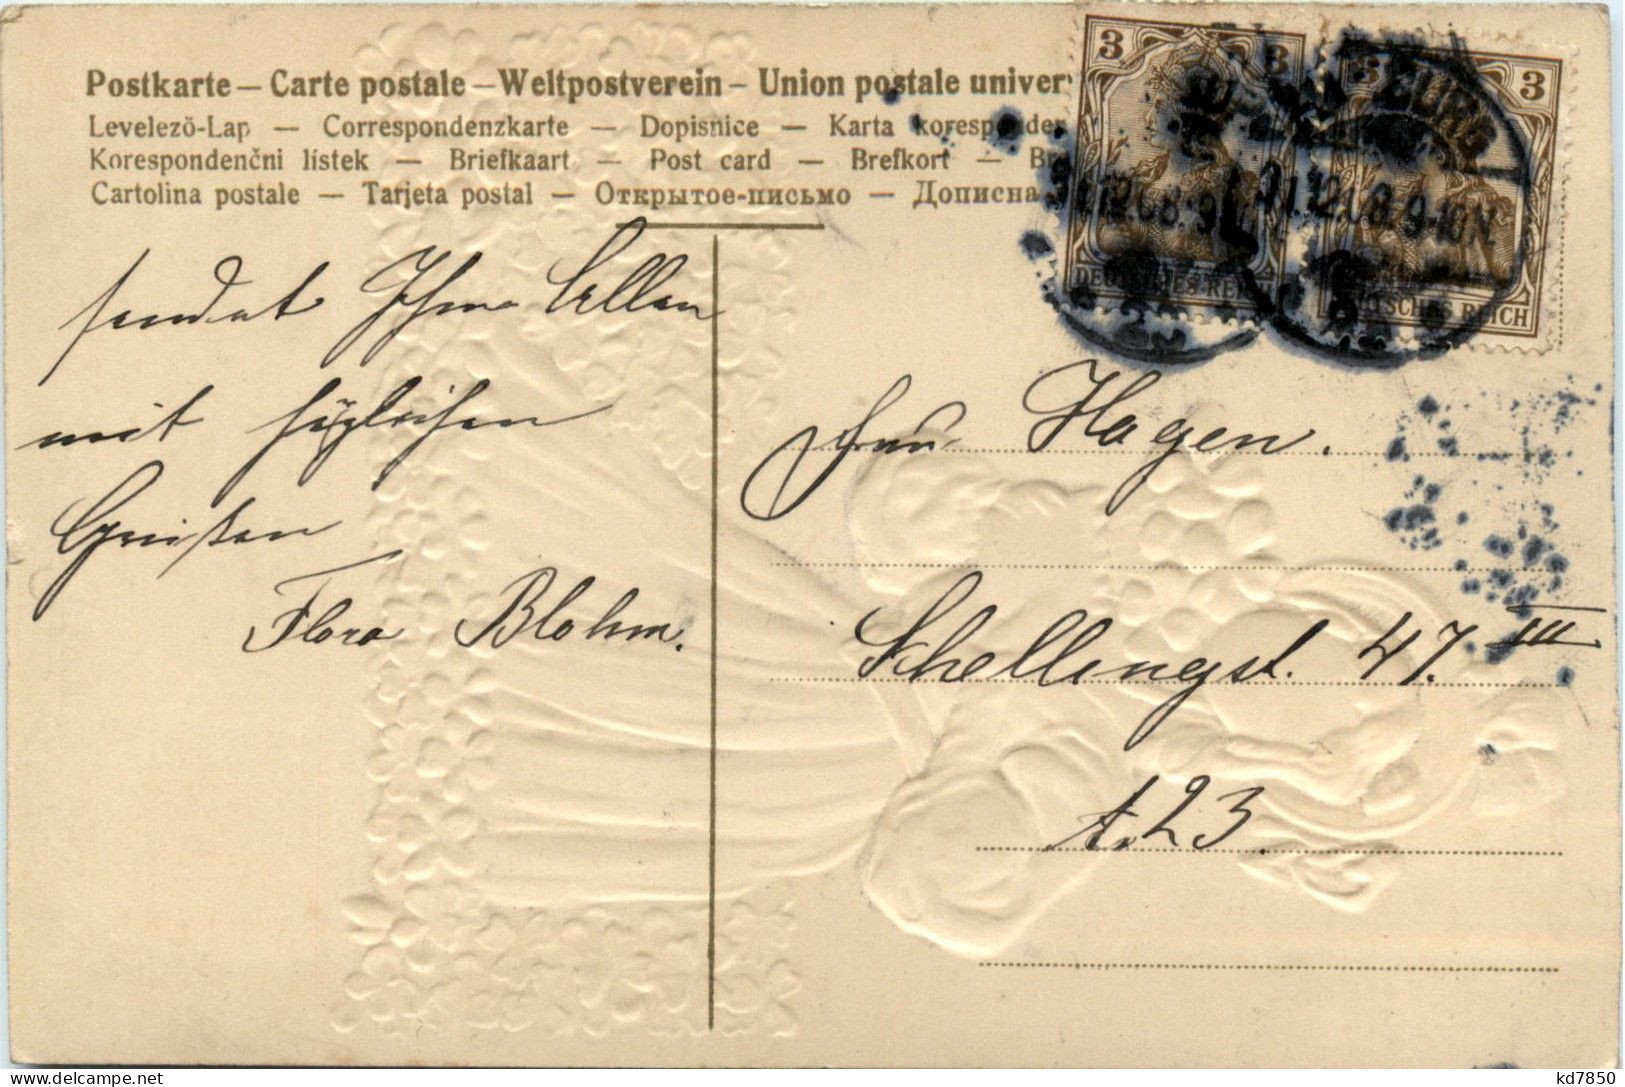 Postkarte — Carte postale — Weltpostverein — Union postale univer
Levelezö-Lap — Correspondenzkarte — Dopisnice — Karta koresponden
Korespondenčni lístek — Briefkaart — Post card — Brefkort — Br
Cartolina postale — Tarjeta postal — Открытое-письмо — Дописна
3
3
3
3
31.12.08.9
31.12.08.9-10N.
DEUTSCHES REICH
DEUTSCHES REICH
sendet Ihnen Allen
mit
Grüßen
Flora Blohm.
Frau Hagen.
Schellingst. 47. III
A. 23.
kd7850